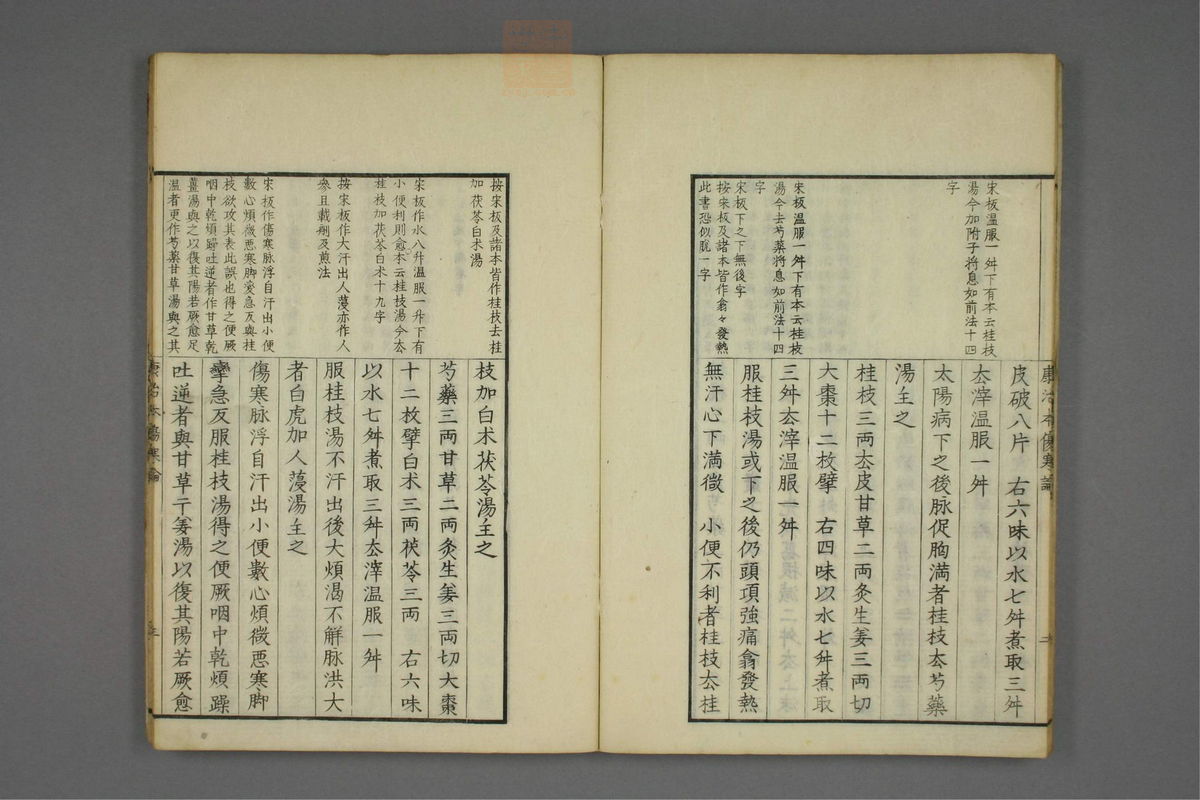 宋板温服一舛下有本云桂枝
湯今加附子将息如前法十四
字
宋板温服一舛下有本云桂枝
湯今去芍薬将息如前法十四
字
宋板下之下無後字
按宋板及諸本皆作翕々發熱
此書恐似脱一字
皮破八片 右六味以水七舛煮取三舛
去滓温服一舛
太陽病下之後脉促胸満者桂枝去芍藥
湯主之
桂枝三両去皮甘草二両灸生姜三両切
大棗十二枚擘 右四味以水七舛煮取
三舛去滓温服一舛
服桂枝湯或下之後仍頭項強痛翕發熱
無汗心下満微 小便不利者桂枝去桂
康治本傷寒論
按宋板及諸本皆作桂枝去桂
加茯苓白朮湯
宋板作水八升温服一升下有
小便利則愈本云桂枝湯今去
桂枝加茯苓白朮十九字
按宋板作大汗出人薓亦作人
參且載剤及煎法
宋板作傷寒脉浮自汗出小便
數心煩微悪寒脚攣急反與桂
枝欲攻其表此誤也得之便厥
咽中乾煩躁吐逆者作甘草乾
薑湯與之以復其陽若厥愈足
温者更作芍薬甘草湯與之其
枝加白朮茯苓湯主之
芍藥三両甘草二両灸生姜三両切大棗
十二枚擘白朮三両茯苓三両 右六味
以水七舛煮取三舛去滓温服一舛
服桂枝湯不汗出後大煩渇不解脉洪大
者白虎加人薓湯主之
傷寒脉浮自汗出小便數心煩微悪寒脚
攣急反服桂枝湯得之便厥咽中乾煩躁
吐逆者與甘草干姜湯以復其陽若厥愈
康治本傷寒論